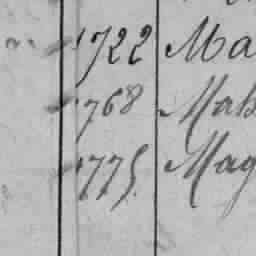 1722 Ma
1768 Mab
1775 Mag